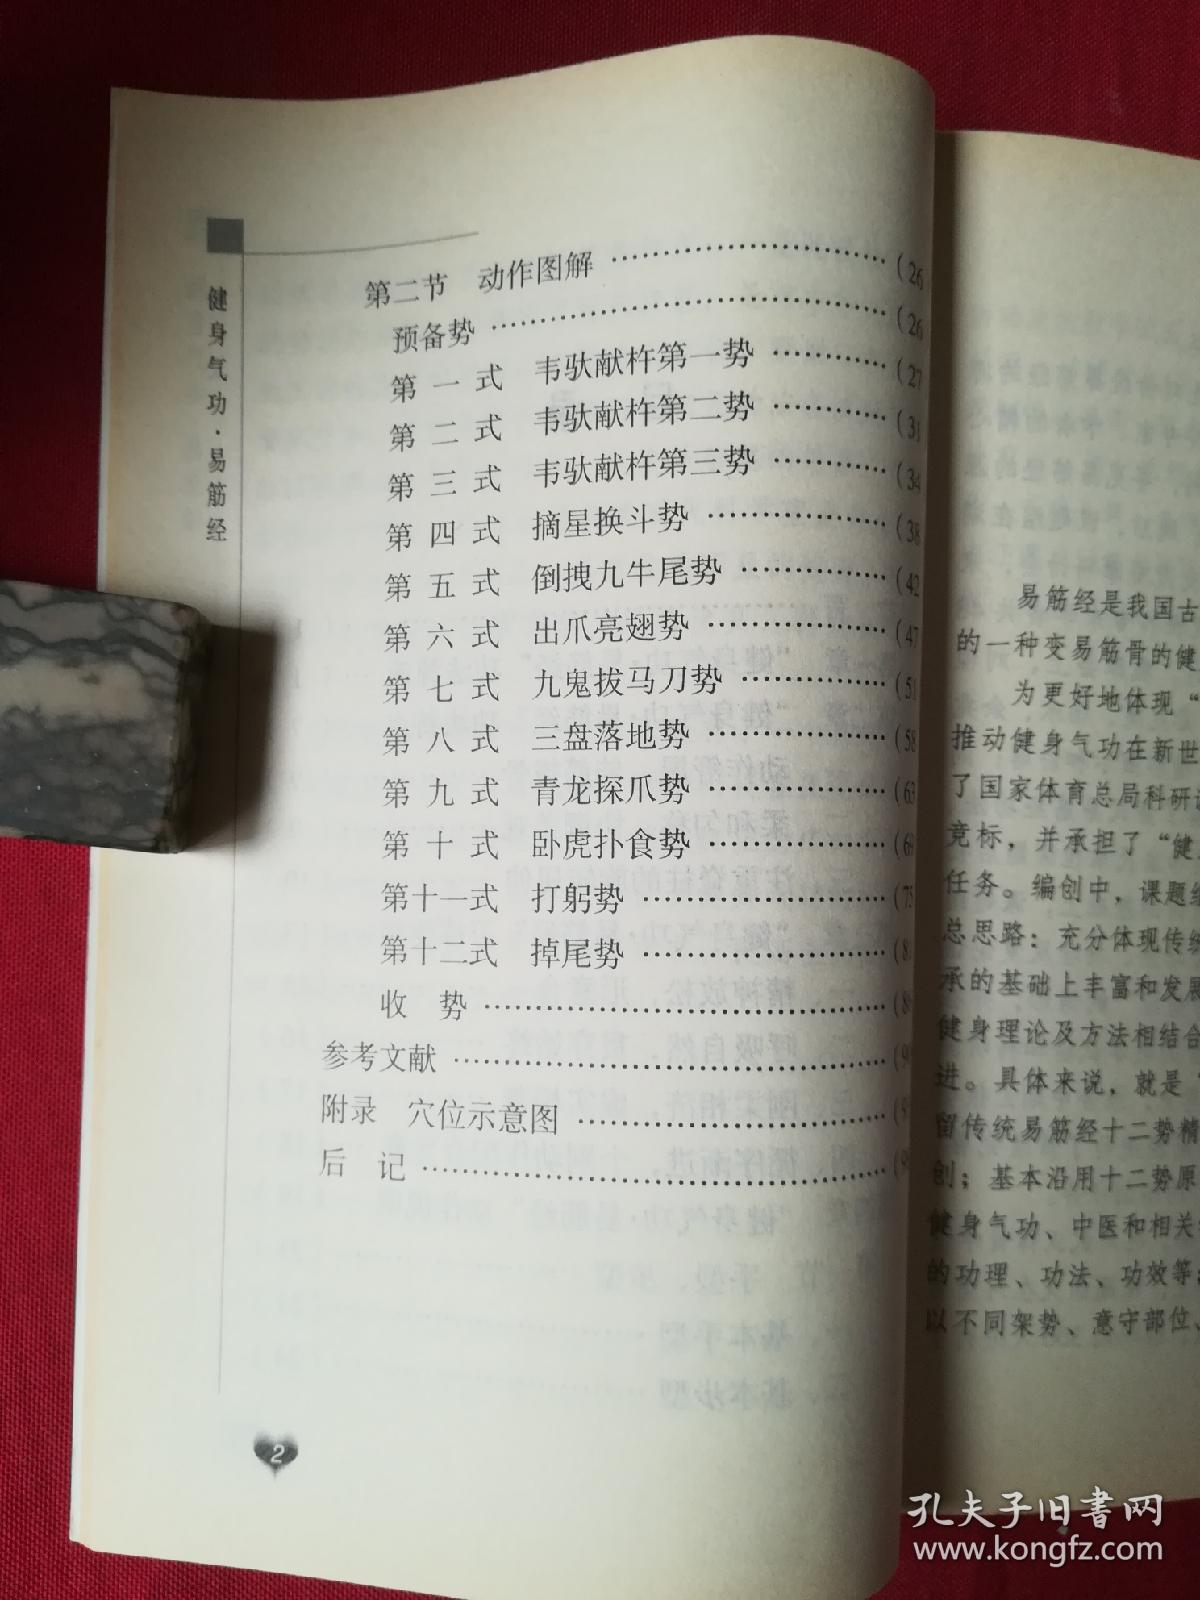 健身气功·易筋经
第二节 动作图解 ……………………… (26
预备势 ……………………………… (26
第一式 韦驮献杵第一势 ………… (27
第二式 韦驮献杵第二势 ………… (31
第三式 韦驮献杵第三势 ………… (34
第四式 摘星换斗势 ……………… (38
第五式 倒拽九牛尾势 …………… (42
第六式 出爪亮翅势 ……………… (47
第七式 九鬼拔马刀势 …………… (51
第八式 三盘落地势 ……………… (58
第九式 青龙探爪势 ……………… (63
第十式 卧虎扑食势 ……………… (69
第十一式 打躬势 …………………… (75
第十二式 掉尾势 …………………… (8
收 势 ………………………………… (8
参考文献 …………………………………… (9
附录 穴位示意图 ………………………… (9
后 记 ……………………………………… (9
2
易筋经是我国古
的一种变易筋骨的健
为更好地体现“
推动健身气功在新世
了国家体育总局科研
竞标，并承担了“健
任务。编创中，课题
总思路：充分体现传统
承的基础上丰富和发展
健身理论及方法相结合
进。具体来说，就是
留传统易筋经十二势精
创；基本沿用十二势原
健身气功、中医和相关
的功理、功法、功效等
以不同架势、意守部位、
孔夫子旧书网
www.kongfz.com